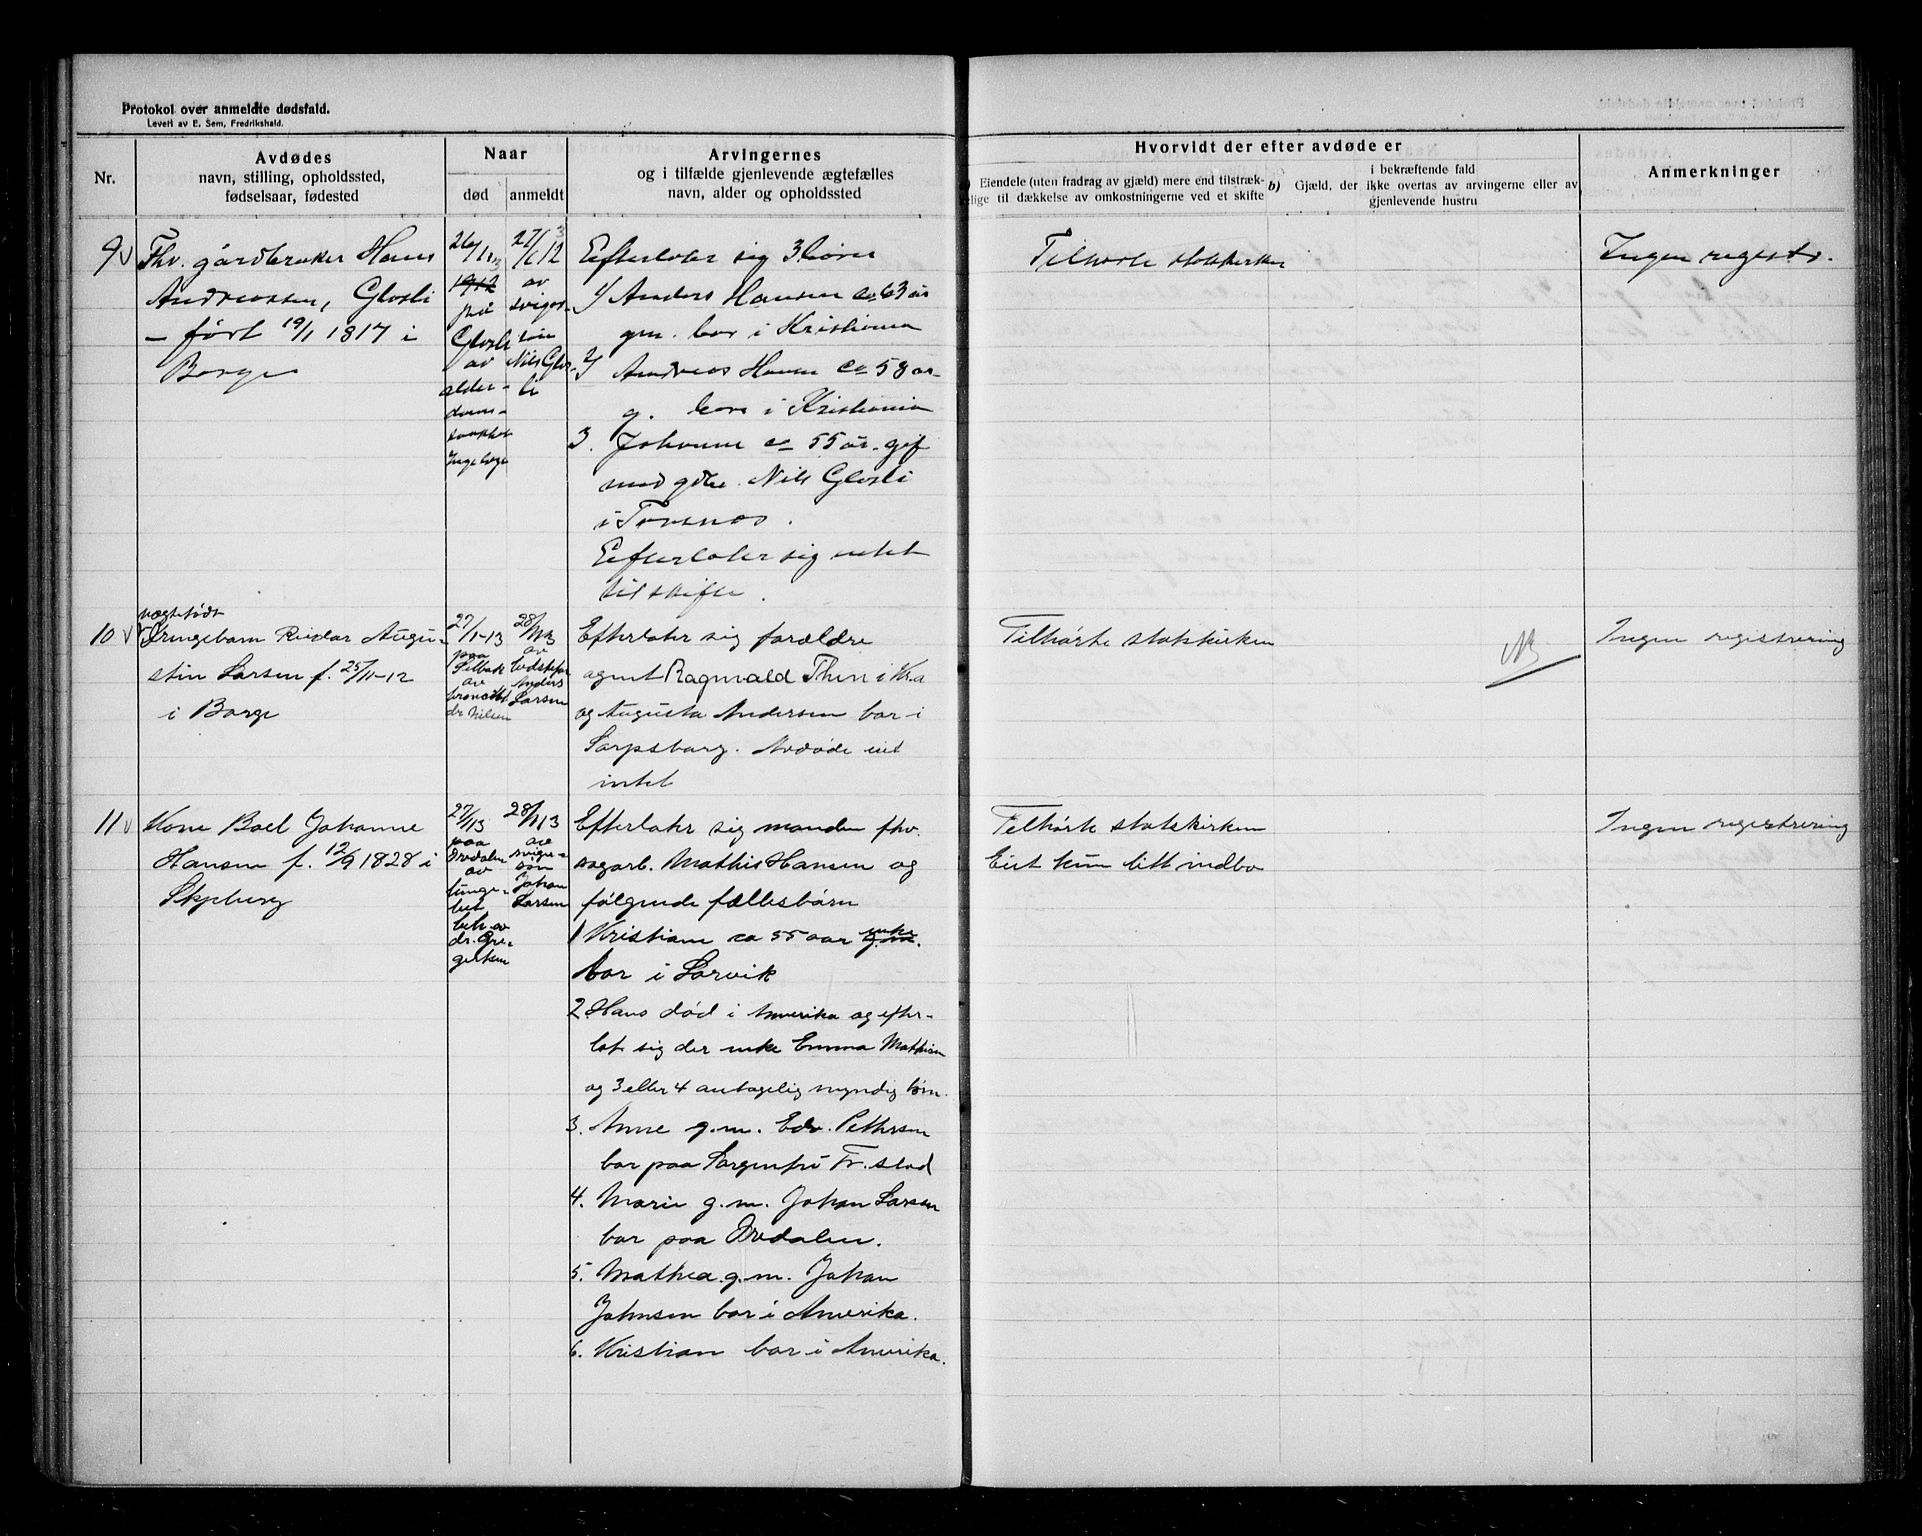 Protokol over anmeldte dødsfald.
Levert av E. Sem, Fredrikshald.
Nr.
Avdødes
navn, stilling, opholdssted,
fødselsaar, fødested
Naar
død
anmeldt
Arvingernes
og i tilfælde gjenlevende ægtefælles
navn, alder og opholdssted
Hvorvidt der efter avdøde er
Eiendele (uten fradrag av gjæld) mere end tilstræk-
elige til dækkelse av omkostningerne ved et skifte
b)
i bekræftende fald
Gjæld, der ikke overtas av arvingerne eller av
gjenlevende hustru
Anmerkninger
9
Fhv. gårdbruker Hans
Andreassen, Glosli
– født 19/1 1817 i
Borge
26/1 13
1912
på
Glosli
av
alder-
doms-
svakhet
Ingen lege
27/1 12 3
av
sviger-
søn
Nils Glos-
li
Efterlater sig 3 børn
1/ Anders Hansen ca 63 år
gm. bor i Kristiania
2/ Andreas Hansen ca 58 år
g. bor i Kristiania
3. Johanne ca 55 år. gif
med gdbr. Nils Glosli
i Torsnes.
Efterlater sig intet
til skifte.
Tilhørte statskirken
Ingen registr.
10
uegtefødt
Drengebarn Reidar Augu-
stin Larsen f. 25/11-12
i Borge
27/1-13
paa
Selbak
av
bronchit
dr. Nilsen
28/1 13
av
bedstefar
Anders
Larsen
Efterlater sig forældre
agent Ragnvald Thin i Kr.a
og Augusta Andersen bor i
Sarpsborg. Avdøde eiet
intet
Tilhørte statskirken
NB
Ingen registrering
11
Kone Boel Johanne
Hansen f. 12/9 1828 i
Skjeberg
27/1 13
paa
Ordalen
av
lunge-
bet.
beh. av
dr. Gre-
gersen
28/1 13
av
sviger-
søn
Johan
Larsen
Efterlater sig manden fhv.
sagarb. Mathis Hansen og
følgende fællesbørn
1 Kristian ca 55 aar enke g.m.
bor i Larvik
2. Hans død i Amerika og efter-
lot sig der enke Emma Mathisen
og 3 eller 4 antagelig myndig børn.
3. Anne g.m. Edv. Pettersen
bor paa Sorgenfri Fr.stad
4. Marie g.m. Johan Larsen
bor paa Ordalen.
5. Mathea g.m. Johan
Johnsen bor i Amerika.
6. Kristian bor i Amerika.
Tilhørte statskirken
Eiet kun litt indbo
Ingen registrering